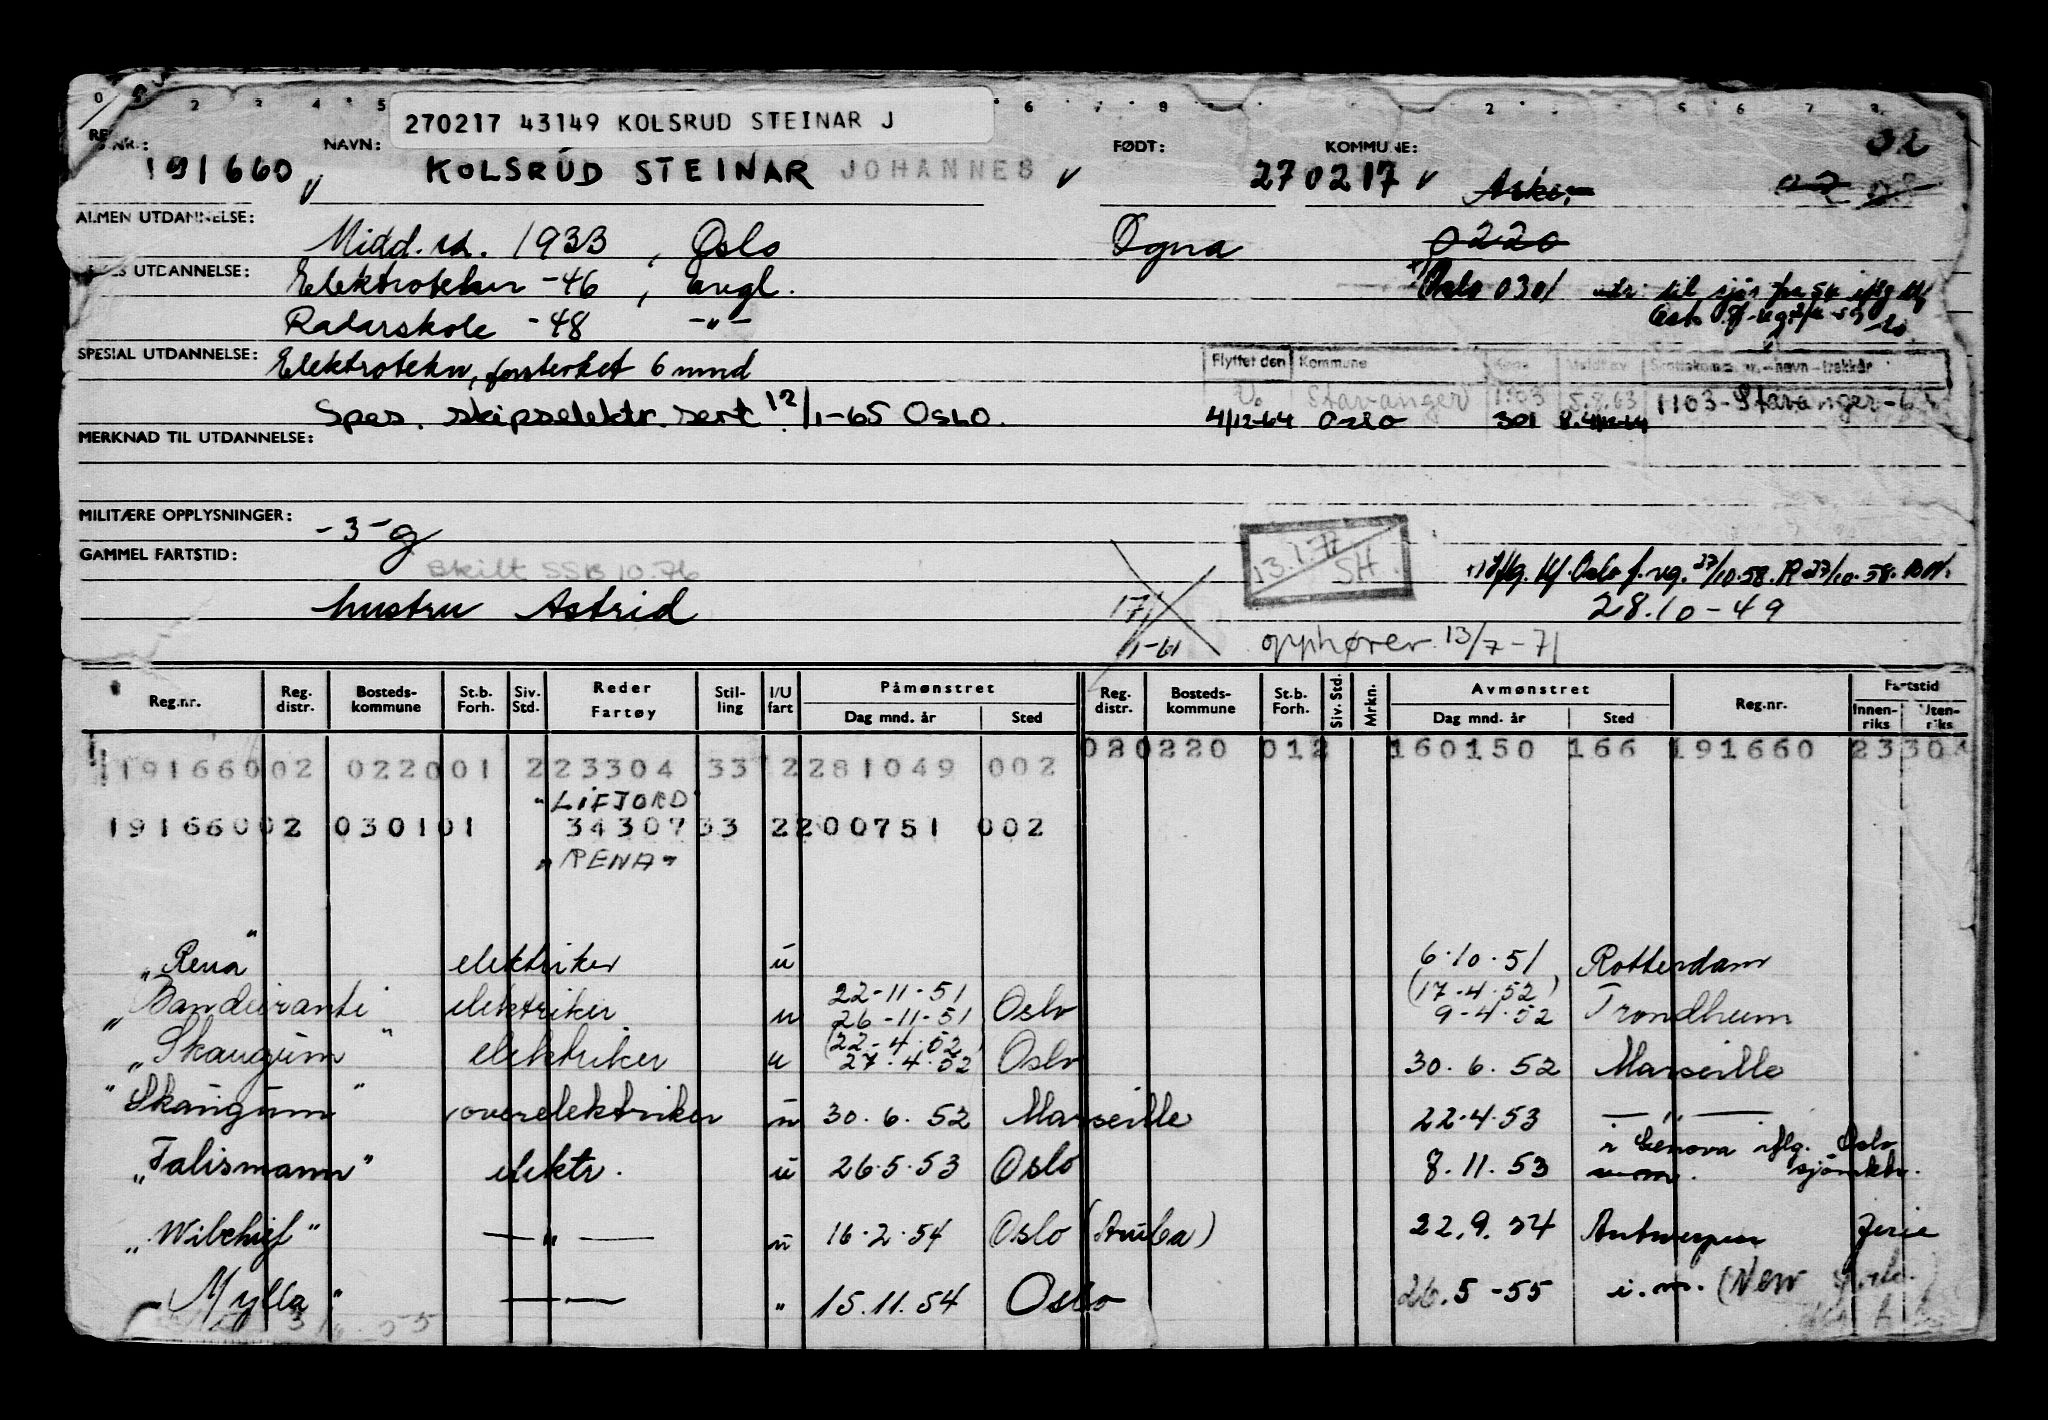 270217 43149 KOLSRUD STEINAR J
NAVN: FØDT: KOMMUNE: 02
191660 KOLSRUD STEINAR JOHANNES 270217
ALMEN UTDANNELSE: Midd.sk. 1933, Oslo Ogna 0220
UTDANNELSE: Elektrotekn -46, engl. Oslo 0301
Radarskole -48 -"-
SPESIAL UTDANNELSE: Elektrotekn, forsterket 6 mnd
Flyttet den Kommune
Stavanger 1103 5.8.63 1103-Stavanger-
Spes. skipselektr. sert 12/1-65 OSLO. 4/12-64 Oslo 301
MERKNAD TIL UTDANNELSE:
MILITÆRE OPPLYSNINGER: -3-g
GAMMEL FARTSTID: Skilt SSB 10.76
13.1.71 SH.
hustru Astrid 28.10-49
17/1-61 opphører 13/7-71
Reg.nr. Reg. distr. Bosteds-kommune St.b. Forh. Siv. Std. Reder Fartøy Stil-ling I/U fart Påmønstret Dag mnd. år Sted Reg. distr. Bosteds-kommune St.b. Forh. Siv. Std. Mrkn. Avmønstret Dag mnd. år Sted Reg.nr. Fartstid Innen-riks Uten-riks
191660 02 0220 01 2 23304 33 2 281049 002 02 0220 012 160150 166 191660 23304
"LIFJORD"
191660 02 0301 01 34307 33 2 200751 002
"RENA"
"Rena" elektriker u 6.10.51 Rotterdam
22-11-51 (17-4.52)
"Bandeiranti" elektriker u 26-11-51 Oslo 9-4.52 Trondheim
(22-4.52)
"Skaugum" elektriker u 27.4.52 Oslo 30.6.52 Marseille
"Skaugum" overelektriker u 30.6.52 Marseille 22.4.53 -"-
i Genova iflg. Oslo
"Talismann" elektr. u 26.5.53 Oslo 8.11.53 sjømktr.
"Wilchief" -"- u 16.2.54 Oslo (Aruba) 22.9.54 Antwerpen ferie
"Mylla" -"- " 15.11.54 Oslo 26.5-55 u.m. (New